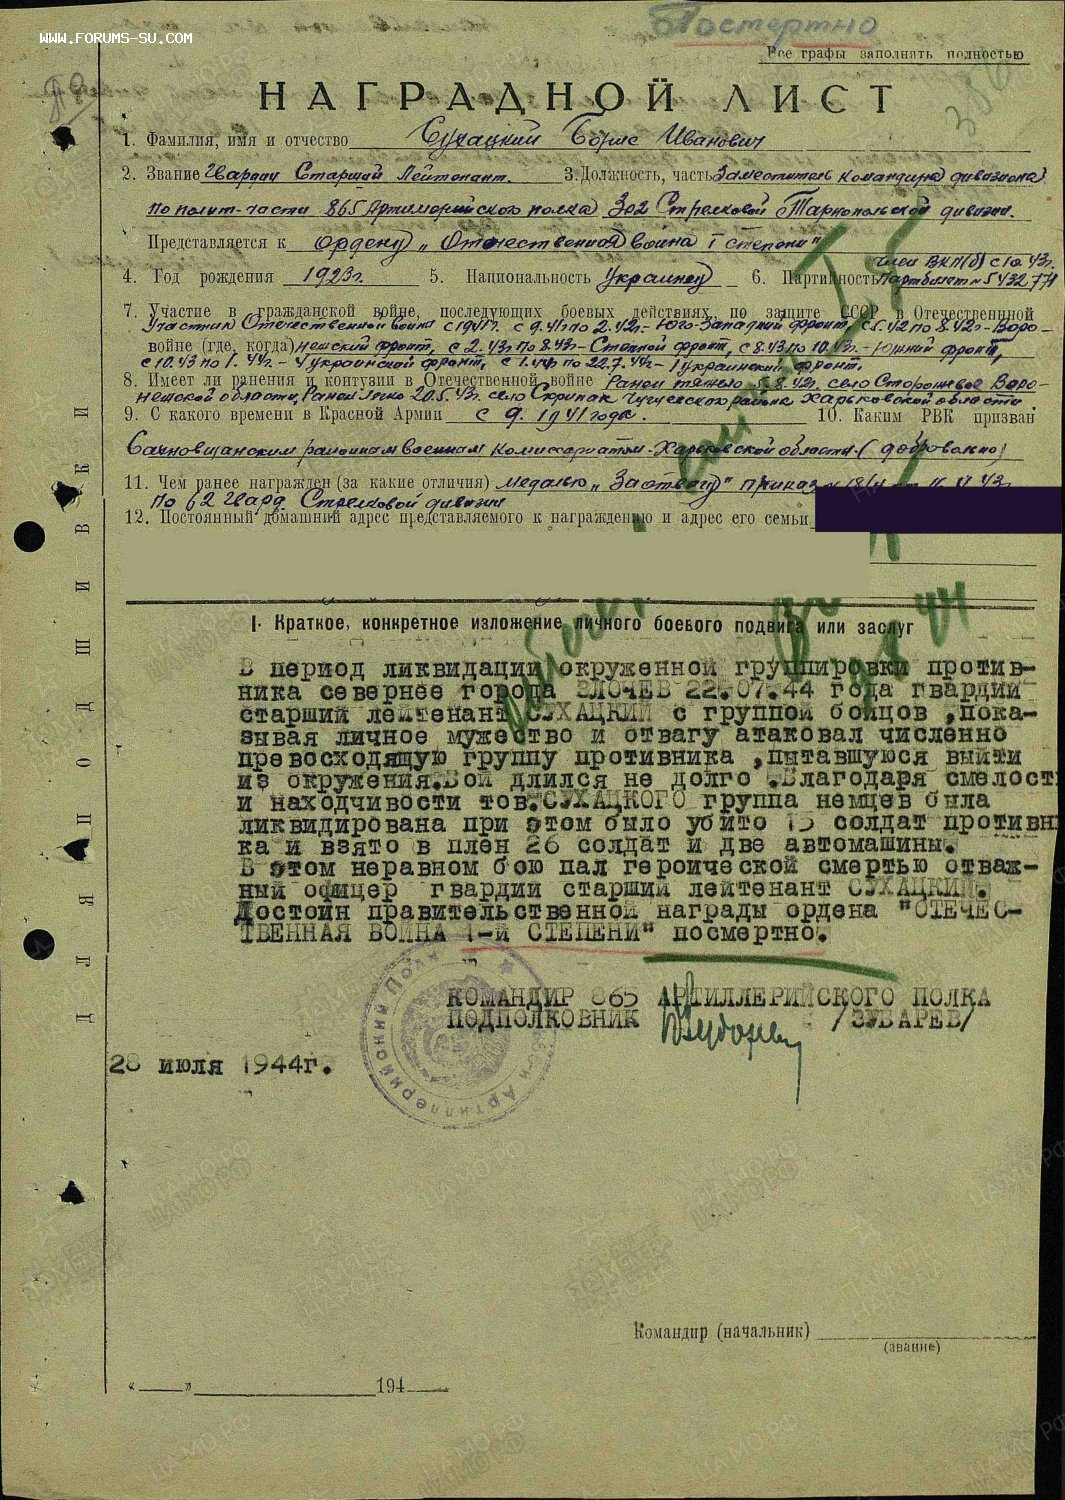 WWW.FORUMS-SU.COM
Постертно
Все графы заполнять полностью
НАГРАДНОЙ ЛИСТ
1. Фамилия, имя и отчество Сухацкий Борис Иванович
2. Звание Гвардии Старший Лейтенант. 3. Должность, часть Заместитель командира дивизиона
по полит-части 865 Артиллерийского полка 302 Стрелковой Тарнопольской дивизии.
Представляется к ордену "Отечественная война I степени"
член ВКП(б) с 10.43г.
4. Год рождения 1923г 5. Национальность Украинец 6. Партийность Партбилет № 5432771
7. Участие в гражданской войне, последующих боевых действиях, по защите СССР в Отечественной
Участник Отечественной войны с 1941г. с 9.41 по 2.42г.- Юго-Западный фронт, с 5.42 по 8.42г-Воро-
войне (где, когда) нешский фронт, с 2.43г по 8.43г- Степной фронт, с 8.43 по 10.43г.- Южный фронт,
с 10.43 по 1.44г.- 4 украинский фронт, с 1.44г по 22.7.44г- 1 украинский фронт.
8. Имеет ли ранения и контузии в Отечественной войне Ранен тяжело 5.8.42г. село Сторожевое Воро-
нежской области, Ранен легко 20.5.43г. село Скрипак Чугуевского района Харьковской области
9. С какого времени в Красной Армии с 9. 1941 года. 10. Каким РВК призван
Сахновщанским районным военным комиссариатом- Харьковской области. (добровольно)
11. Чем ранее награжден (за какие отличия) медалью "За отвагу" приказ
по 62 Гвард. Стрелковой дивизии
12. Постоянный домашний адрес представляемого к награждению и адрес его семьи
ДЛЯ ПОДШИВКИ
I. Краткое, конкретное изложение личного боевого подвига или заслуг
В период ликвидации окруженной группировки против-
ника севернее города ЗЛОЧЕВ 22.07.44 года гвардии
старший лейтенант СУХАЦКИЙ с группой бойцов ,пока-
зывая личное мужество и отвагу атаковал численно
превосходящую группу противника ,пытавшуюся выйти
из окружения.Бой длился не долго .Благодаря смелости
и находчивости тов.СУХАЦКОГО группа немцев была
ликвидирована при этом было убито 15 солдат противни
ка и взято в плен 26 солдат и две автомашины.
В этом неравном бою пал героической смертью отваж-
ный офицер гвардии старший лейтенант СУХАЦКИЙ.
Достоин правительственной награды ордена "ОТЕЧЕС-
ТВЕННАЯ ВОЙНА 1-й СТЕПЕНИ" посмертно.
КОМАНДИР 865 АРТИЛЛЕРИЙСКОГО ПОЛКА
ПОДПОЛКОВНИК /ЗУБАРЕВ/
Артиллерийский Полк
28 июля 1944г.
Командир (начальник)
(звание)
"___"_________194__